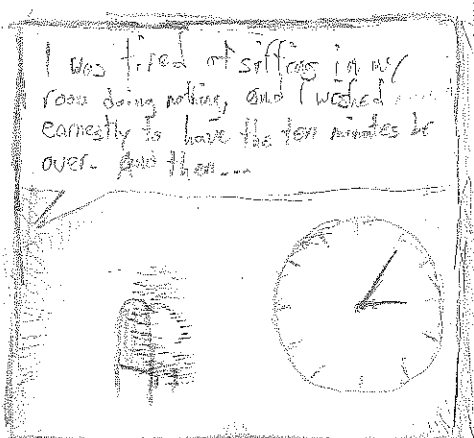 I was tired of sitting in my
room doing nothing, and I wished
earnestly to have the ten minutes be
over. And then...